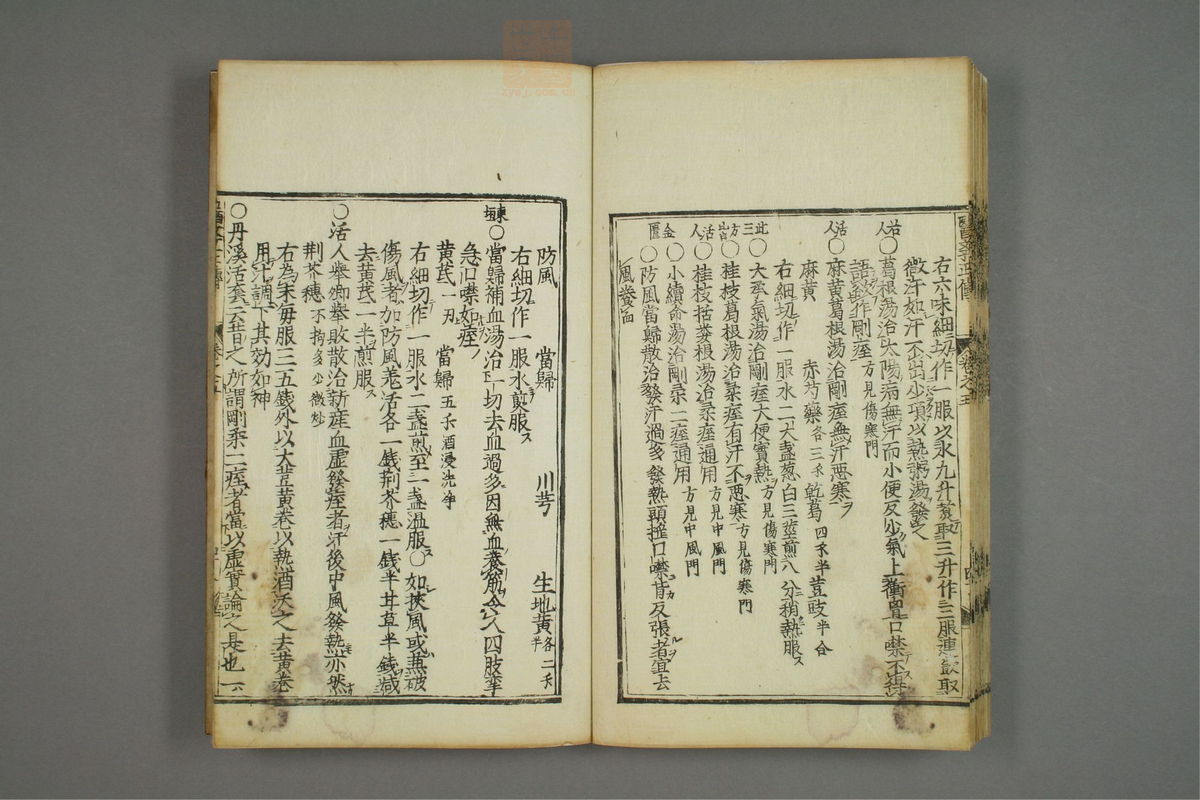 右六味細切作一服以水九升煑取三升作三服連飲取
微汗如汗不出少項以熱粥湯發之
若人〇葛根湯治太陽病無汗而小便反少氣上衝胷口噤不得
語欲作剛痓方見傷寒門
活人〇麻黄葛根湯治剛痓無汗悪寒
麻黄 赤芍藥各三戔 乾葛四戔半 荳豉半合
右細切作一服水二大盞葱白三莖煎八分稍熱服
〇大承氣湯治剛痓大便實熱方見傷寒門
此三方出活人〇桂枝葛根湯治柔痓有汗不悪寒方見傷寒門
〇桂枝括蔞根湯治柔痓通用方見中風門
〇小續命湯治剛柔二痓通用方見中風門
金匱〇防風當歸散治發汗過多發熱頭揺口噤背反張者宜去
風養血
防風 當歸 川芎 生地黄各二戔半
右細切作一服水煎服
東垣〇當歸補血湯治一切去血過多因無血養筋令人四肢攣
急口噤如痓
黄芪一刄 當歸五戔酒浸洗净
右細切作一服水二盞煎至一盞温服〇如挾風或兼破
傷風者加防風羌活各一錢荆芥穗一錢半甘草半錢减
去黄芪一半煎服
〇活人舉卿舉敗散治新産血虚發痓者汗後中風發熱亦然
荆芥穗不拘多少微炒
右為末毎服三五錢外以大荳黄卷以熱酒沃之去黄卷
用汁調下其効如神
〇丹溪活套云昔之所謂剛柔二痓者當以虚實論之是也一